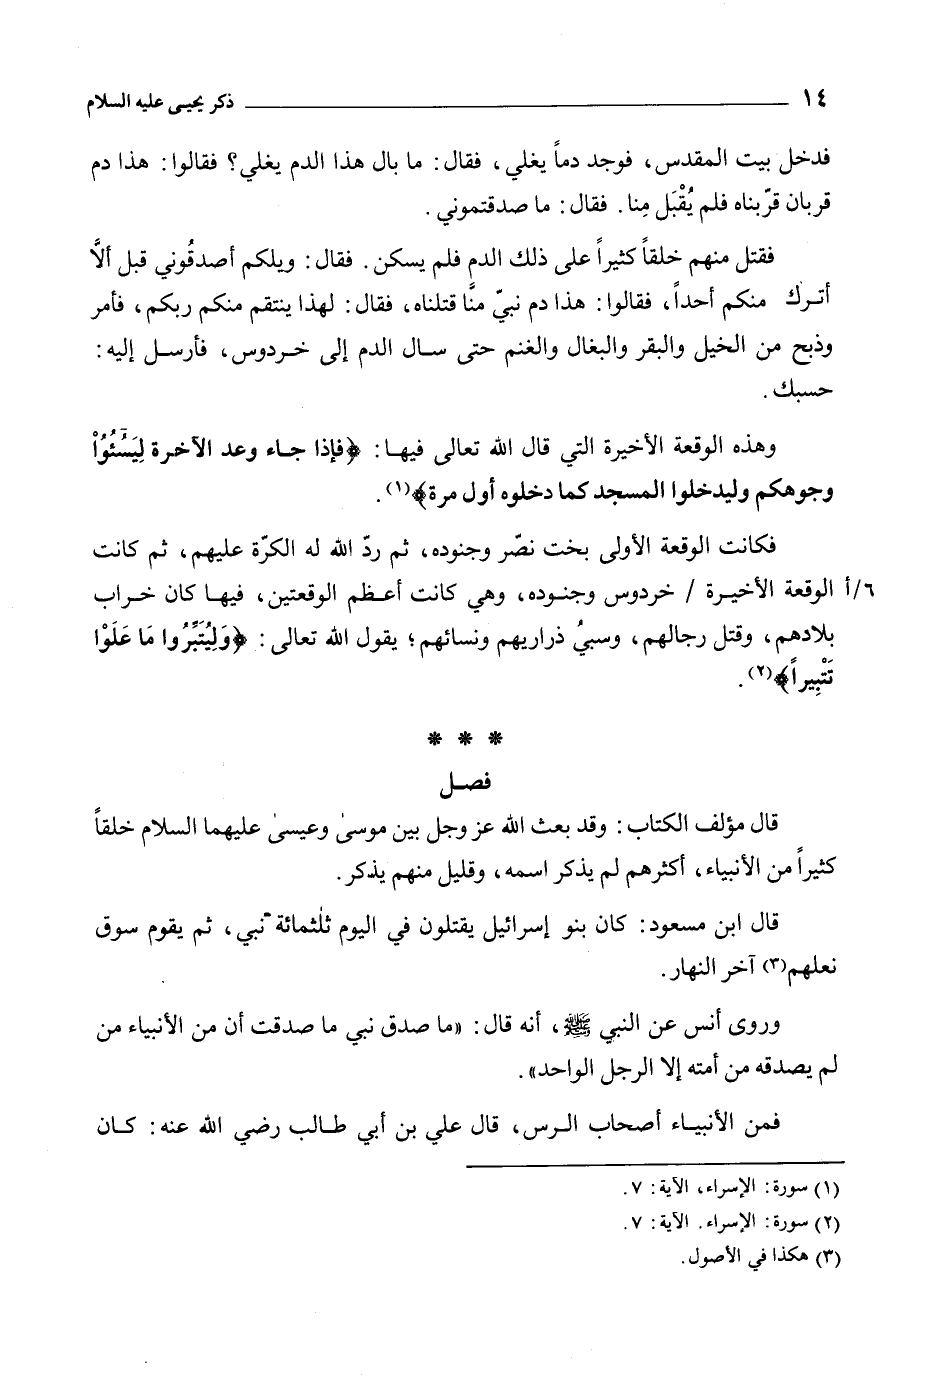 ١٤ ذكر يحيى عليه السلام
فدخل بيت المقدس، فوجد دماً يغلي، فقال: ما بال هذا الدم يغلي؟ فقالوا: هذا دم
قربان قرّبناه فلم يُقْبَل مِنا. فقال: ما صدقتموني.
فقتل منهم خلقاً كثيراً على ذلك الدم فلم يسكن. فقال: ويلكم أصدقُوني قبل ألاَّ
أترك منكم أحداً، فقالوا: هذا دم نبيّ منَّا قتلناه، فقال: لهذا ينتقم منكم ربكم، فأمر
وذبح من الخيل والبقر والبغال والغنم حتى سال الدم إلى خردوس، فأرسل إليه:
حسبك.
وهذه الوقعة الأخيرة التي قال الله تعالى فيها: ﴿فإذا جاء وعد الآخرة لِيَسُۤئُواْ
وجوهكم وليدخلوا المسجد كما دخلوه أول مرة﴾(١).
فكانت الوقعة الأولى بخت نصّر وجنوده، ثم ردّ الله له الكرّة عليهم، ثم كانت
٦/أ الوقعة الأخيرة / خردوس وجنوده، وهي كانت أعظم الوقعتين، فيها كان خراب
بلادهم، وقتل رجالهم، وسبيُ ذراريهم ونسائهم؛ يقول الله تعالى: ﴿وَلِيُتَبِّرُوا مَا عَلَوْا
تَتْبِيراً﴾(٢).
* * *
فصل
قال مؤلف الكتاب: وقد بعث الله عز وجل بين موسىٰ وعيسىٰ عليهما السلام خلقاً
كثيراً من الأنبياء، أكثرهم لم يذكر اسمه، وقليل منهم يذكر.
قال ابن مسعود: كان بنو إسرائيل يقتلون في اليوم ثلٰثمائة نبي، ثم يقوم سوق
نعلهم(٣) آخر النهار.
وروى أنس عن النبي ﷺ، أنه قال: «ما صدق نبي ما صدقت أن من الأنبياء من
لم يصدقه من أمته إلا الرجل الواحد».
فمن الأنبياء أصحاب الرس، قال علي بن أبي طالب رضي الله عنه: كان
(١) سورة: الإسراء، الآية: ٧.
(٢) سورة: الإسراء. الآية: ٧.
(٣) هكذا في الأصول.